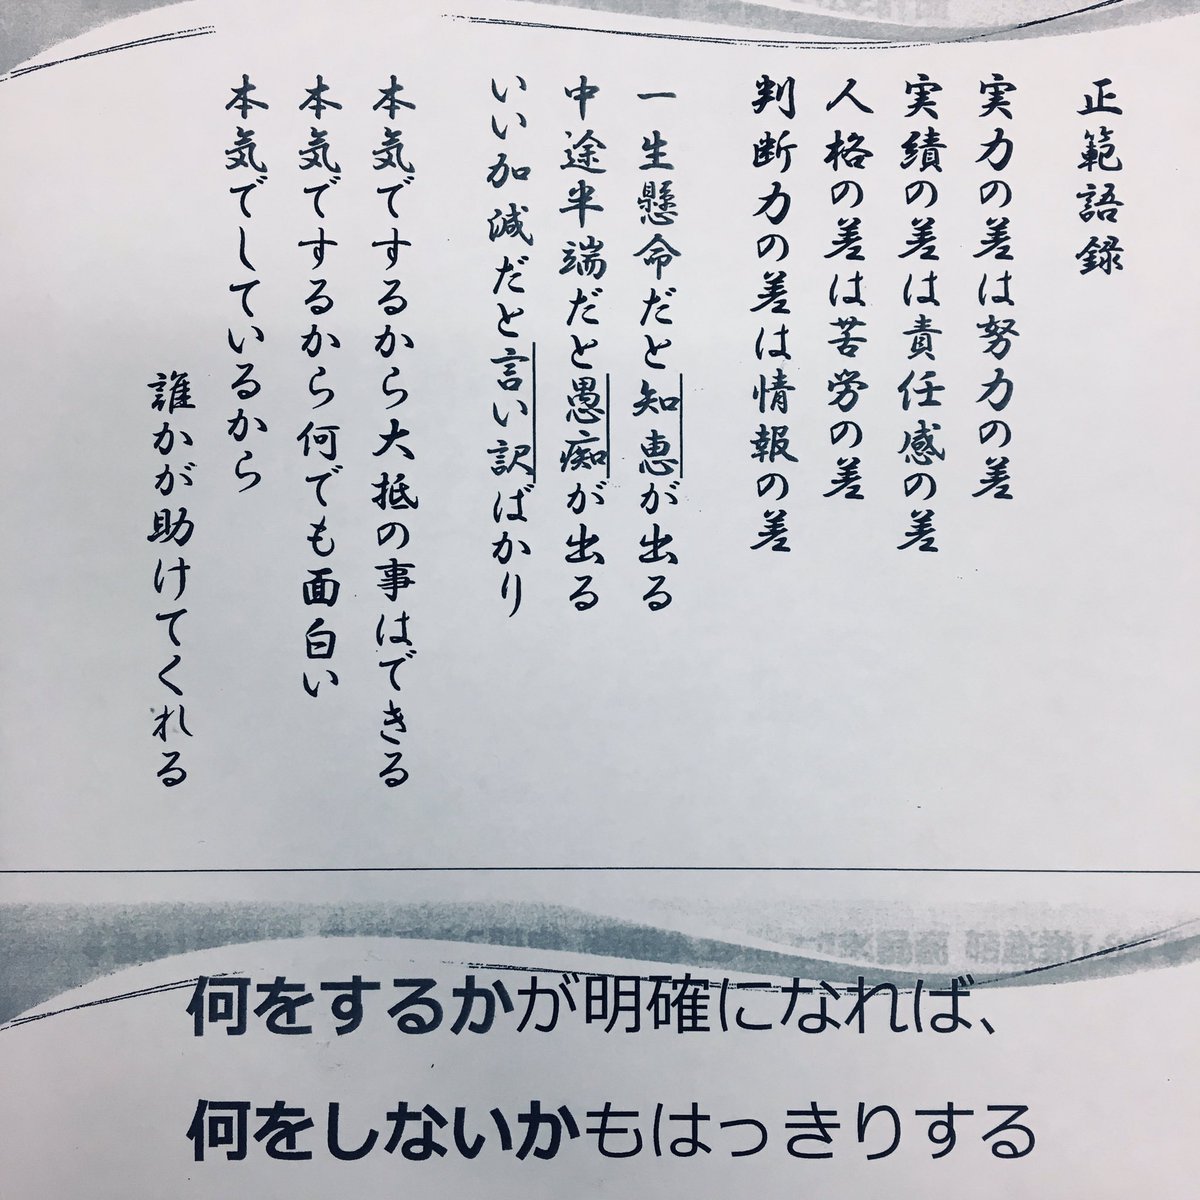 正範語録
実力の差は努力の差
実績の差は責任感の差
人格の差は苦労の差
判断力の差は情報の差
一生懸命だと知恵が出る
中途半端だと愚痴が出る
いい加減だと言い訳ばかり
本気でするから大抵の事はできる
本気でするから何でも面白い
本気でしているから
誰かが助けてくれる
何をするかが明確になれば、
何をしないかもはっきりする